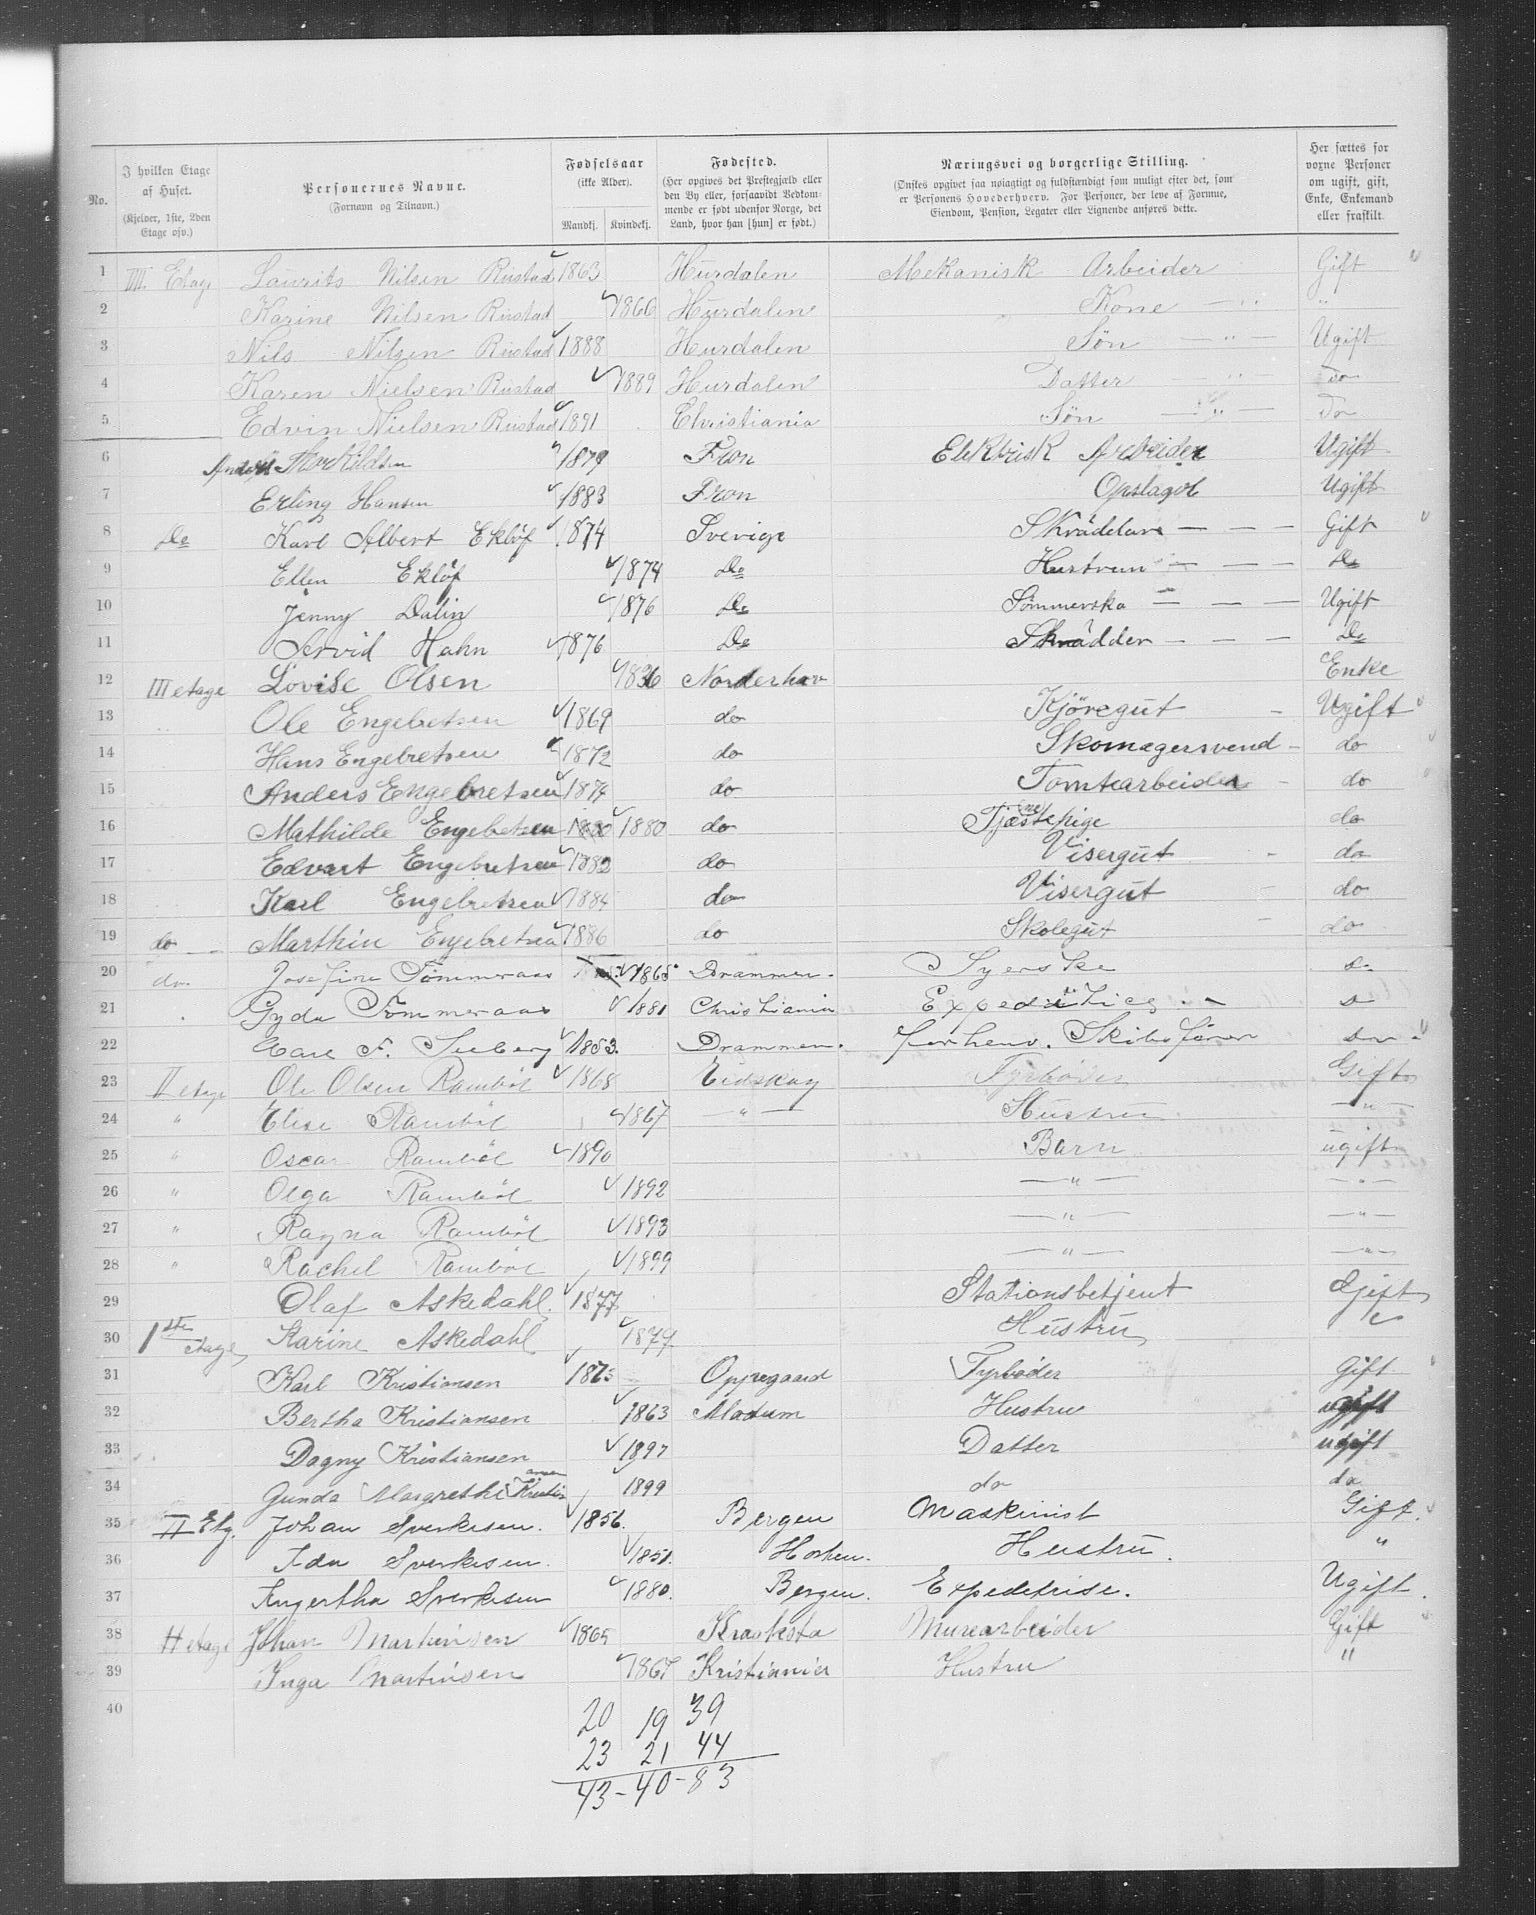 No. I hvilken Etage af Huset. (Kjelder, 1ste, 2den Etage osv.) Personernes Navne. (Fornavn og Tilnavn.) Fødselsaar (ikke Alder). Mandkj. Kvindekj. Fødested. (Her opgives det Prestegjæld eller den By eller, forsaavidt Vedkommende er født udenfor Norge, det Land, hvor han [hun] er født.) Næringsvei og borgerlige Stilling. (Ønskes opgivet saa nøiagtigt og fuldstændigt som muligt efter det, som er Personens Hovederhverv. For Personer, der leve af Formue, Eiendom, Pension, Legater eller Lignende anføres dette. Her sættes for voxne Personer om ugift, gift, Enke, Enkemand eller fraskilt.
1 IIII Etage Laurits Nilsen Rustad 1863 Hurdalen Mekanisk Arbeider Gift
2 Karine Nilsen Rustad 1866 Hurdalen Kone — " — "
3 Nils Nilsen Rustad 1888 Hurdalen Søn — " — Ugift
4 Karen Nielsen Rustad 1889 Hurdalen Datter — " — do
5 Edvin Nielsen Rustad 1891 Christiania Søn — " — Do
6 Anders Thorkildsen 1879 Fron Elektrisk Arbeider Ugift
7 Erling Hansen 1883 Fron Ugift
8 Do Karl Albert Eklöf 1874 Sverige Gift
9 Ellen Eklöf 1874 Do Hustrun Do
10 Jenny Dalin 1876 Do Sömmerska Ugift
11 Arvid Hahn 1876 Do Skrädder Do
12 III etage Lovise Olsen 1836 Norderhov Enke
13 Ole Engebretsen 1869 do Kjöregut Ugift
14 Hans Engebretsen 1872 do Skomagersvend do
15 Anders Engebretsen 1874 do Tomtearbeider do
16 Mathilde Engebetsen 1880 1880 do Tjenstepige do
17 Edvart Engebretsen 1882 do Visergut do
18 Karl Engebretsen 1884 do Visergut do
19 do Marthin Engebretsen 1886 do Skolegut do
20 do. Josefine Tömmeraas 1865 Drammen. Syerske do
21 Gyda Tömmeraas 1881 Christiania Expeditrice do
22 Carl F. Seeberg 1853. Drammen. forhenv. Skibsfører do
23 II etage Ole Olsen Ramböl 1868 Eidskog Fyrböder Gift
24 " Elise Ramböl 1867 — " — Hustru — " —
25 " Oscar Ramböl 1890 Barn ugift
26 " Olga Ramböl 1892 — " — — " —
27 " Ragna Ramböl 1893 — " — — " —
28 " Rachel Ramböl 1899 — " — — " —
29 Olaf Askedahl. 1877 Stationsbetjent Gjift
30 1ste etage Karine Askedahl 1879 Hustru "
31 Karl Kristiansen Oppegaard Fyrböder Gift
32 Bertha Kristiansen 1863 Modum Hustru ugift
33 Dagny Kristiansen 1897 Datter ugift
34 Gunda Margrethe Kristiansen 1899 do do
35 II Etg. Johan Sverkesen. 1856. Bergen Maskinist Gift.
36 Ida Sverkesen. 1851. Horten. Hustru. "
37 Ingertha Sverkesen 1880. Bergen. Expeditrise. Ugift.
38 II etage Johan Martinsen 1865 Kraaksta Murearbeider Gift
39 Inga Martinsen 1867 Kristiania Hustru "
40
20 19 39
23 21 44
43 - 40 - 83